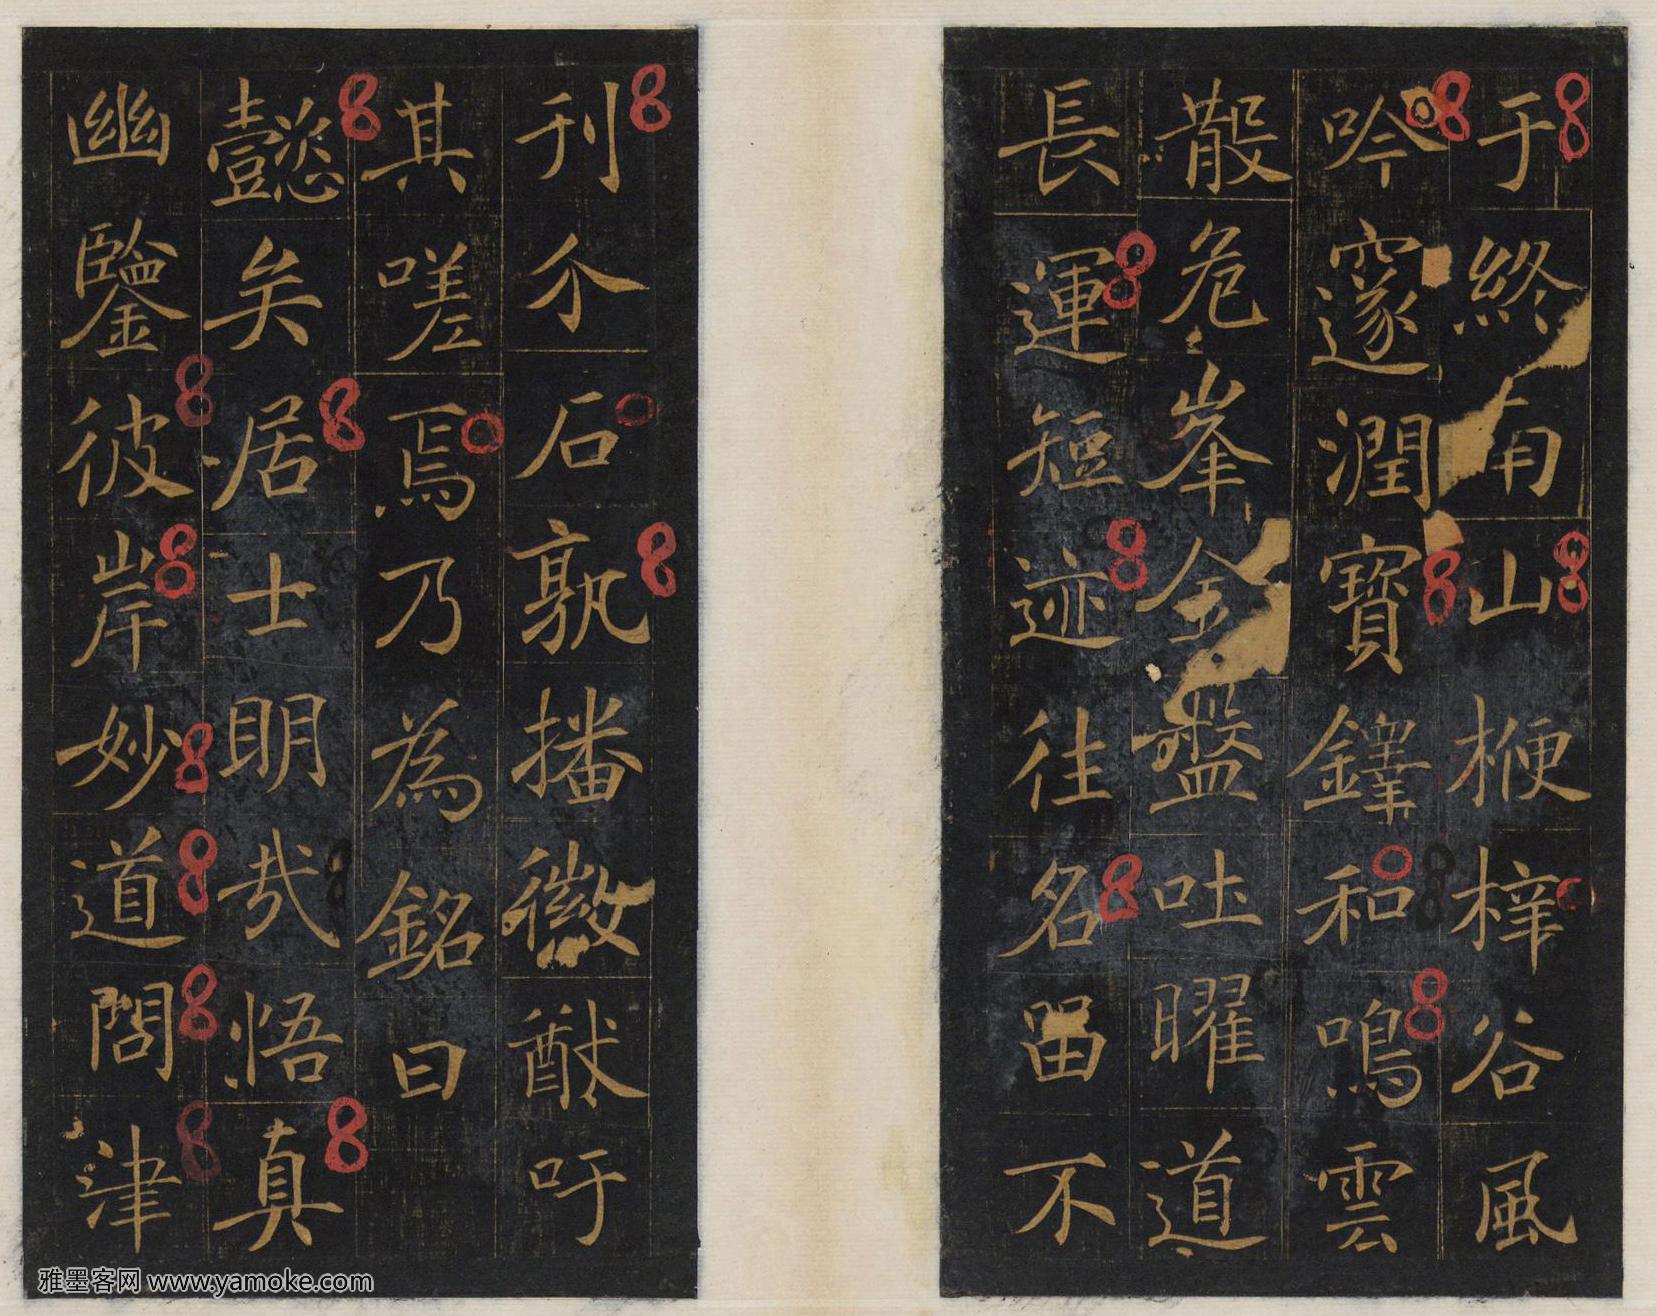 于終南山楩梓谷風
吟邃潤寶鐸和鳴雲
散危峯金盤吐曜道
長運短迹往名留不
刊介石孰播徽猷吁
其嗟焉乃為銘曰
懿矣居士明哉悟真
幽鑒彼岸妙道問津
雅墨客网 www.yamoke.com